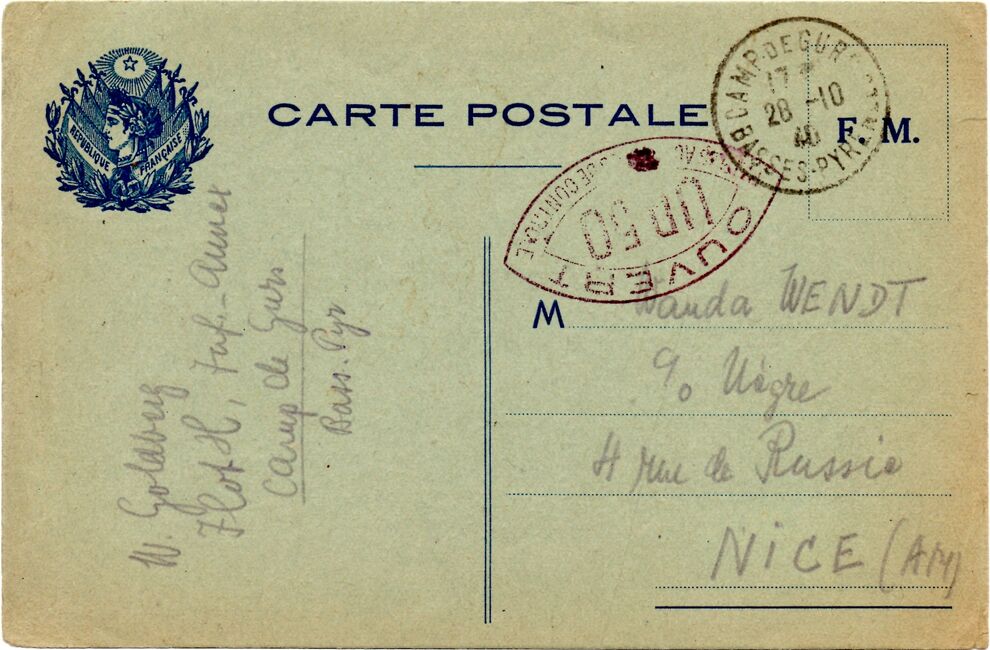 RÉPUBLIQUE FRANÇAISE
CARTE POSTALE
F. M.
CAMP DE GURS
17
28 -10
40
BASSES-PYR.
OUVERT
UD 50
M Wanda WENDT
c/o Nègre
4 rue de Russie
NICE (AM)
W. Goldberg
Ilot H, Inf.-Annex
Camp de Gurs
Bass. Pyr